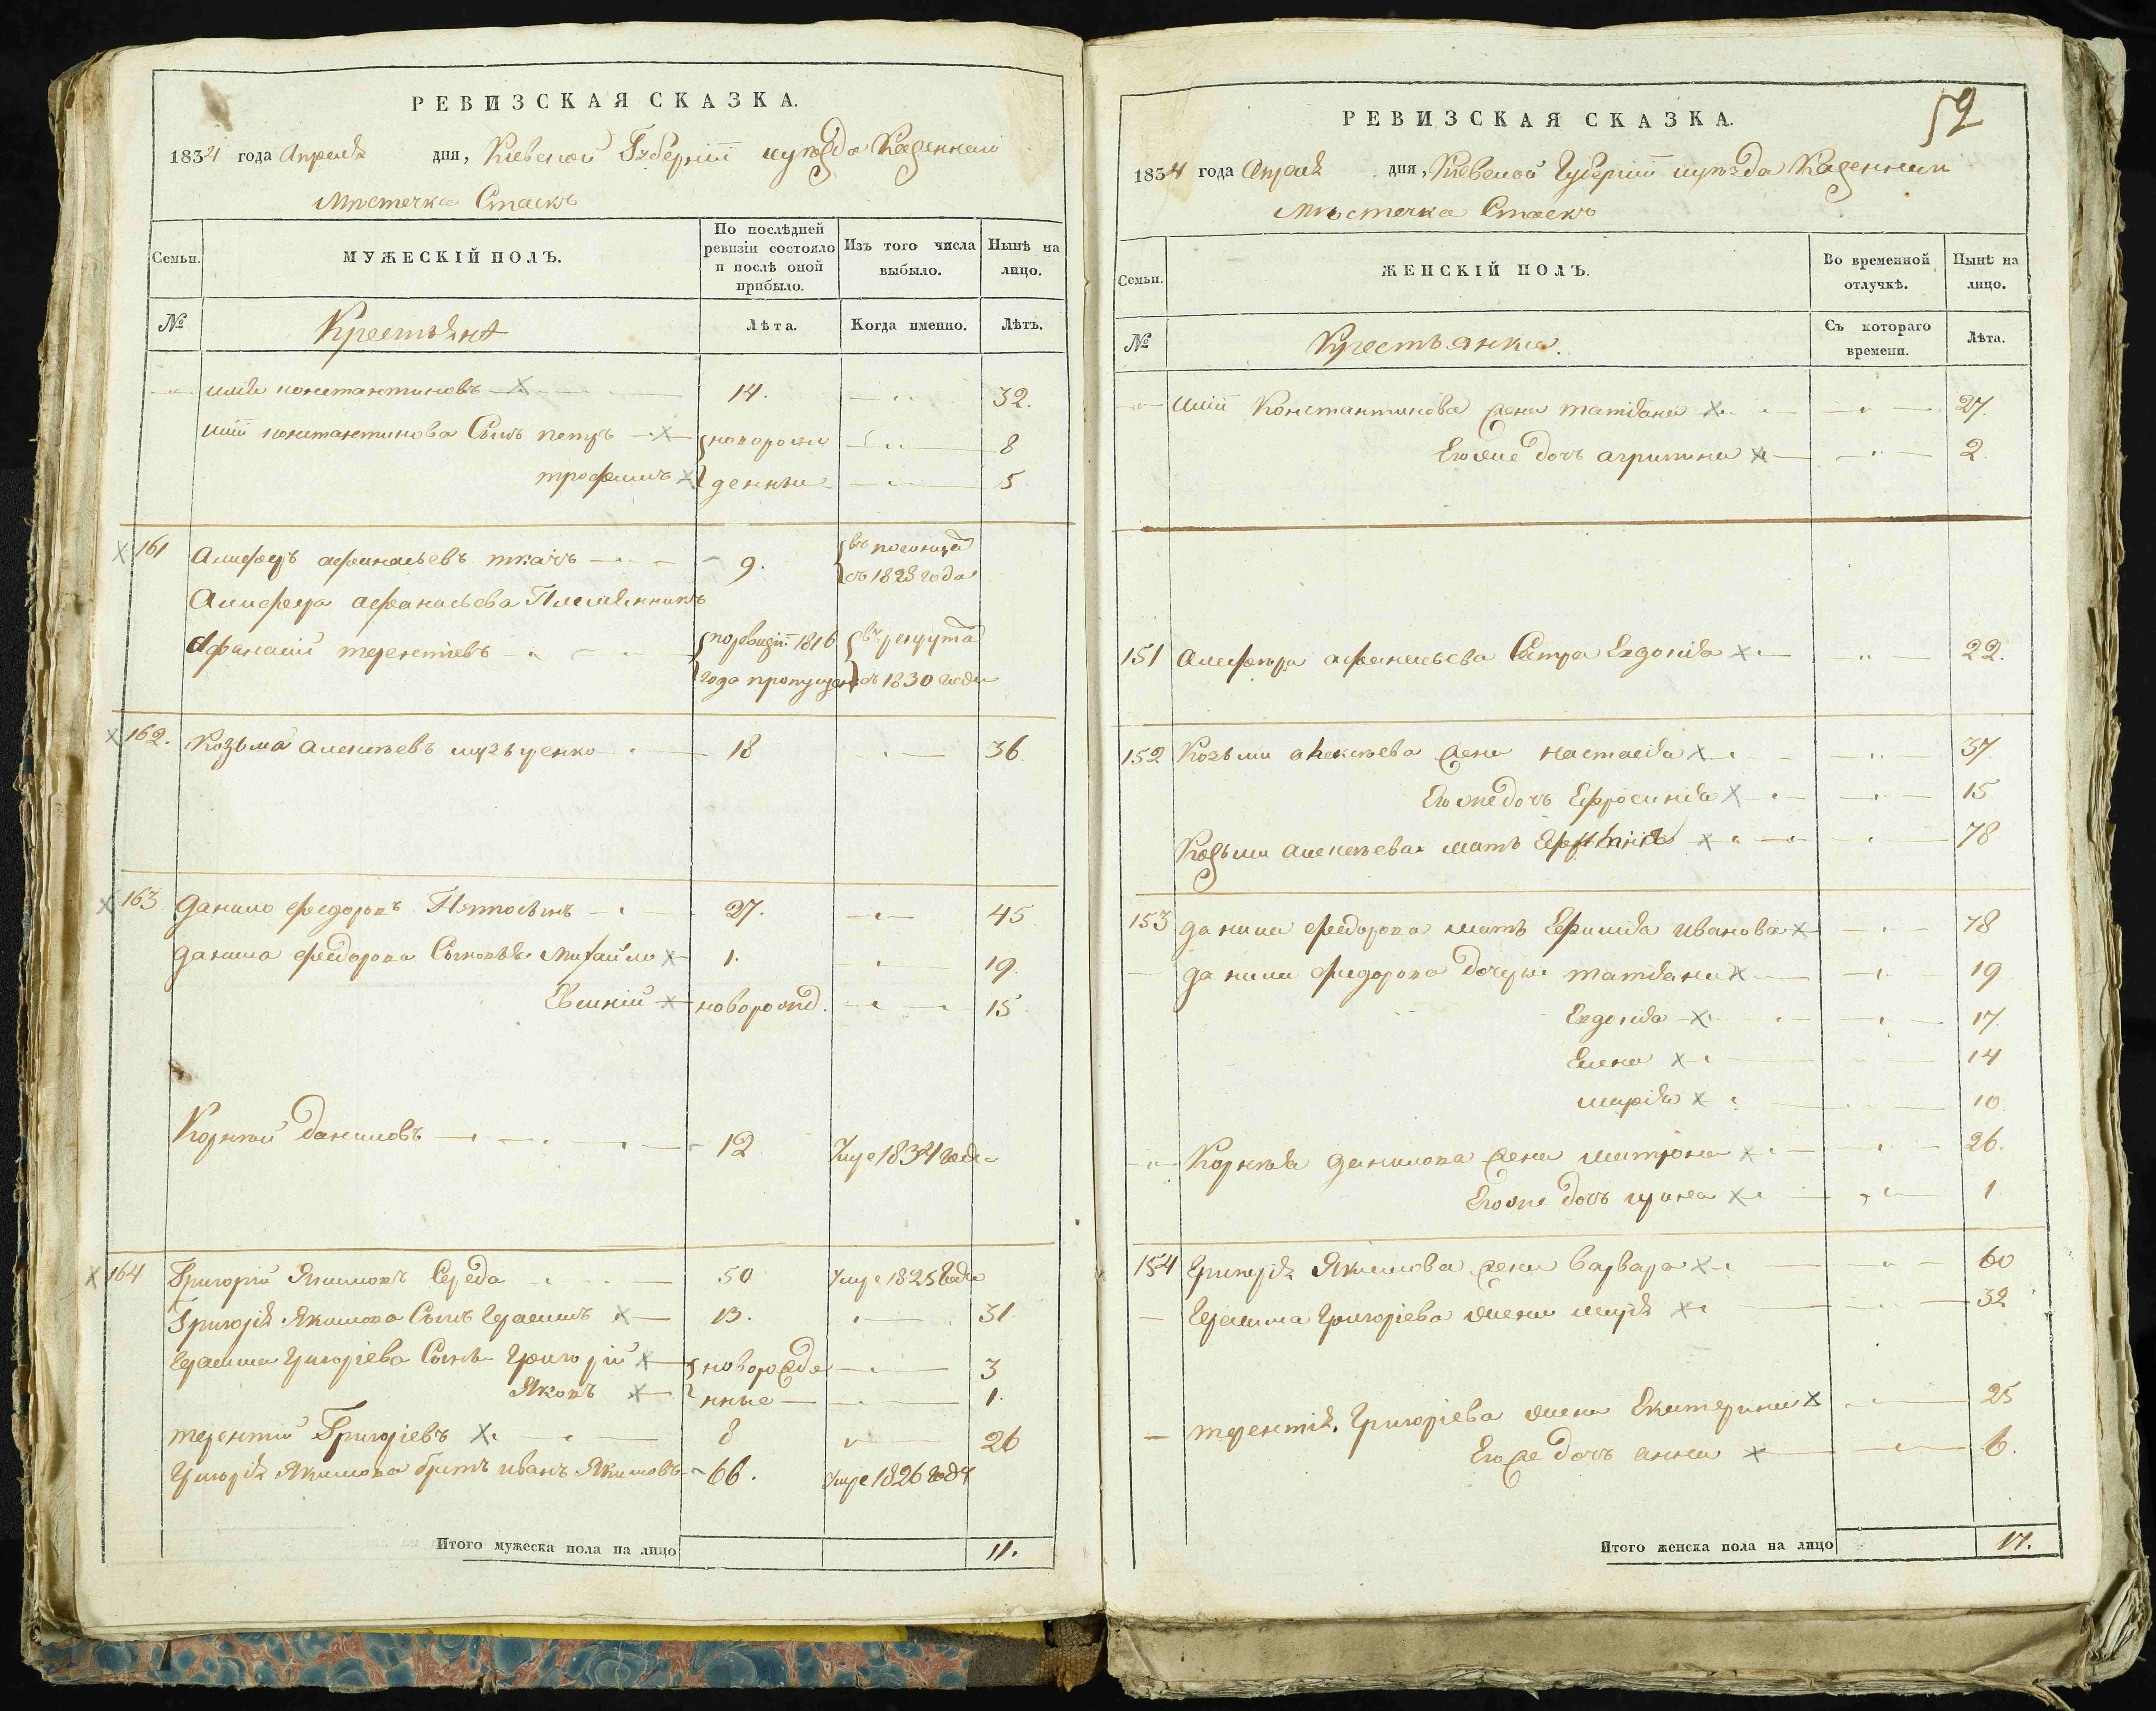 РЕВИЗСКАЯ СКАЗКА.
1834 года Апреля дня, Киевской Губернiи уѣзда Казенного
Мѣстечка Стаекъ
Семьи.
МУЖЕСКІЙ ПОЛЪ.
По послѣдней ревизіи состояло и послѣ оной прибыло.
Изъ того числа выбыло.
Нынѣ на лицо.
№
Крестьяне
Лѣта.
Когда именно.
Лѣтъ.
константиновъ 14. 32.
константинова Сынъ петръ новорож 8
трофимъ денные 5
161 Алиферъ афанасьевъ ткачъ 9.
съ 1828 года
Алифера афанасьева Племянникъ
Афанасій терентіевъ по ревизіи 1816 въ рекрута
года пропущенъ съ 1830 года
162. Козьма алексѣевъ 18 36.
163 данило федоровъ 27. 45
данила федорова Сыновья михайло 1. 19.
Евгеній новорожд. 15.
Корнѣй даниловъ 12 Умре 1834 года
164 Григорій Якимовъ Середа 50 Умре 1825 года
Григорія Якимова Сынъ Герасимъ 13. 31
Герасима Григоріева Сыны Григорій новорожде 3
Яковъ нные 1.
терентій Григоріевъ 8 26
Григорія Якимова братъ иванъ Якимовъ 66. Умре 1826 года
Итого мужеска пола на лицо 11.
59
РЕВИЗСКАЯ СКАЗКА.
1834 года Апреля дня, Киевской Губерніи уѣзда Казенного
Мѣстечка Стаекъ
Семьи.
ЖЕНСКІЙ ПОЛЪ.
Во временной отлучкѣ.
Нынѣ на лицо.
№
Крестьянки.
Съ котораго времени.
Лѣта.
Константинова жена татіана 27.
Его же дочь агрипина 2
151 Алифера афанасьева Сестра Евдокія 22.
152 Козьми алексѣева жена настасія 37.
Его же дочь Ефросинія 15
Козьми алексѣева мать 78
153 данила федорова мать Ефимія иванова 78
данила федорова дочери татіана 19
Евдокія 17
Елена 14
марія 10
Корнѣя данилова жена матрона 26.
Его же дочь 1
154 Григорія Якимова жена варвара 60
Герасима Григоріева жена марія 32
терентія Григоріева жена Екатерина 25
Его же дочь анна 6.
Итого женска пола на лицо 17.